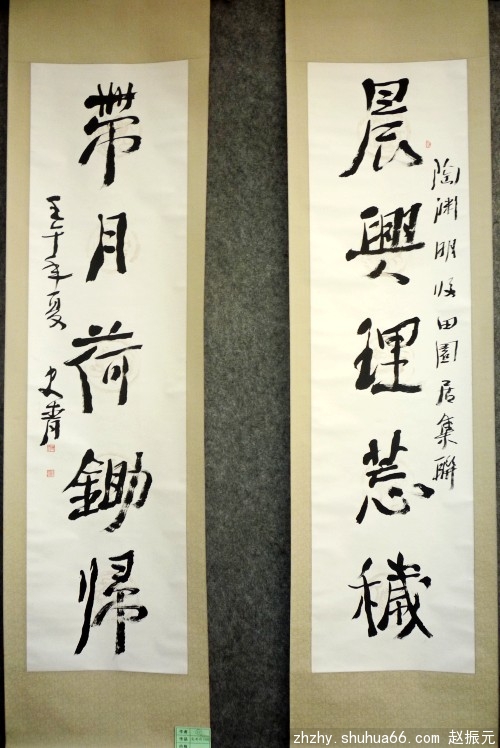 晨興理荒穢
陶渊明归田園居集聯
帶月荷鋤歸
壬午年夏
史青
zhzhy.shuhua66.com 赵振元